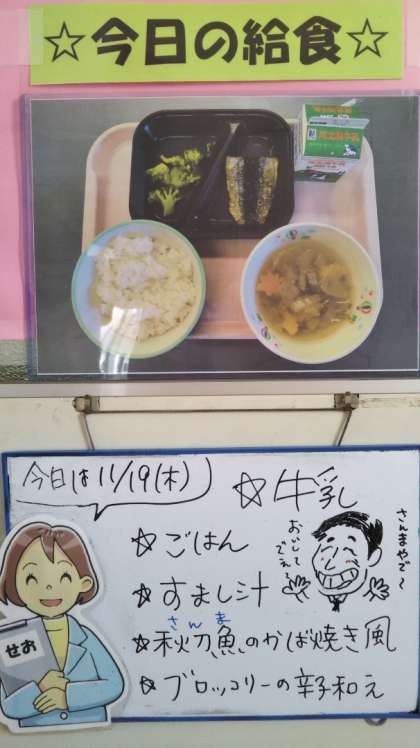 ☆今日の給食☆
今日は11/19(木)
☆牛乳
☆ごはん
☆すまし汁
さんま
☆秋刀魚のかば焼き風
☆ブロッコリーの辛子和え
さんまやで～
せお